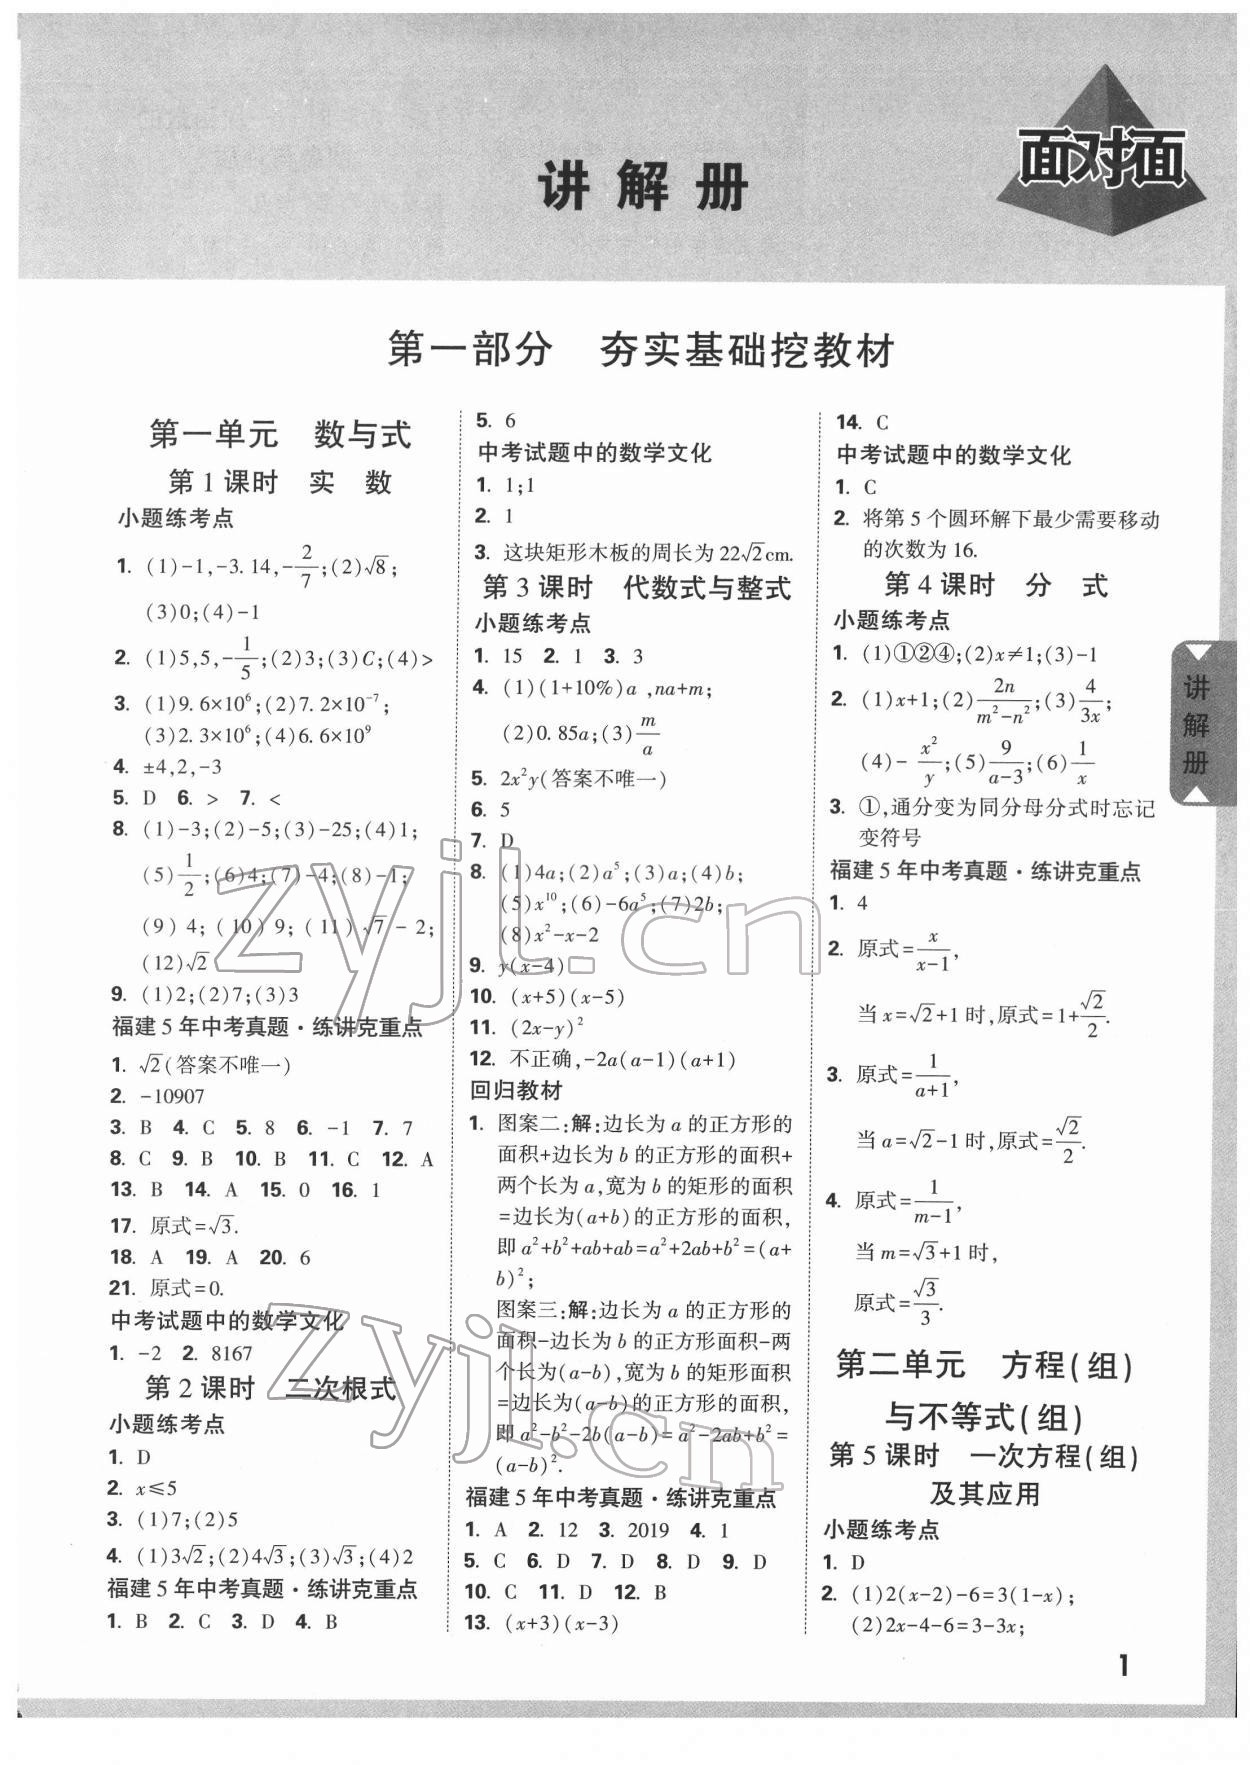 面对面
讲解册
第一部分 夯实基础挖教材
第一单元 数与式
第1课时 实 数
小题练考点
1. (1)-1,-3.14,-2/7;(2)√8;
(3)0;(4)-1
2. (1)5,5,-1/5;(2)3;(3)C;(4)>
3. (1)9.6×10⁶;(2)7.2×10⁻⁷;
(3)2.3×10⁶;(4)6.6×10⁹
4. ±4,2,-3
5. D 6. > 7. <
8. (1)-3;(2)-5;(3)-25;(4)1;
(5)1/2;(6)4;(7)-4;(8)-1;
(9)4;(10)9;(11)√7-2;
(12)√2
9. (1)2;(2)7;(3)3
福建5年中考真题·练讲克重点
1. √2(答案不唯一)
2. -10907
3. B 4. C 5. 8 6. -1 7. 7
8. C 9. B 10. B 11. C 12. A
13. B 14. A 15. 0 16. 1
17. 原式=√3.
18. A 19. A 20. 6
21. 原式=0.
中考试题中的数学文化
1. -2 2. 8167
第2课时 二次根式
小题练考点
1. D
2. x≤5
3. (1)7;(2)5
4. (1)3√2;(2)4√3;(3)√3;(4)2
福建5年中考真题·练讲克重点
1. B 2. C 3. D 4. B
5. 6
中考试题中的数学文化
1. 1;1
2. 1
3. 这块矩形木板的周长为22√2cm.
第3课时 代数式与整式
小题练考点
1. 15 2. 1 3. 3
4. (1)(1+10%)a,na+m;
(2)0.85a;(3)m/a
5. 2x²y(答案不唯一)
6. 5
7. D
8. (1)4a;(2)a⁵;(3)a;(4)b;
(5)x¹⁰;(6)-6a⁵;(7)2b;
(8)x²-x-2
9. y(x-4)
10. (x+5)(x-5)
11. (2x-y)²
12. 不正确,-2a(a-1)(a+1)
回归教材
1. 图案二:解:边长为a的正方形的
面积+边长为b的正方形的面积+
两个长为a,宽为b的矩形的面积
=边长为(a+b)的正方形的面积,
即a²+b²+ab+ab=a²+2ab+b²=(a+
b)²;
图案三:解:边长为a的正方形的
面积-边长为b的正方形面积-两
个长为(a-b),宽为b的矩形面积
=边长为(a-b)的正方形的面积,
即a²-b²-2b(a-b)=a²-2ab+b²=
(a-b)².
福建5年中考真题·练讲克重点
1. A 2. 12 3. 2019 4. 1
5. C 6. D 7. D 8. D 9. D
10. C 11. D 12. B
13. (x+3)(x-3)
14. C
中考试题中的数学文化
1. C
2. 将第5个圆环解下最少需要移动
的次数为16.
第4课时 分 式
小题练考点
1. (1)①②④;(2)x≠1;(3)-1
2. (1)x+1;(2)2n/(m²-n²);(3)4/(3x);
(4)-x²/y;(5)9/(a-3);(6)1/x
3. ①,通分变为同分母分式时忘记
变符号
福建5年中考真题·练讲克重点
1. 4
2. 原式=x/(x-1),
当x=√2+1时,原式=1+√2/2.
3. 原式=1/(a+1),
当a=√2-1时,原式=√2/2.
4. 原式=1/(m-1),
当m=√3+1时,
原式=√3/3.
第二单元 方程(组)
与不等式(组)
第5课时 一次方程(组)
及其应用
小题练考点
1. D
2. (1)2(x-2)-6=3(1-x);
(2)2x-4-6=3-3x;
讲解册
1
zyjl.cn
zyjl.cn